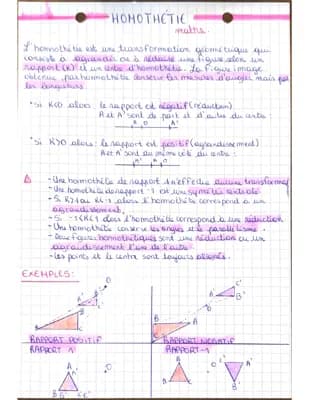 HOMOTHÉTIE
maths.
L'homothétie est une transformation géométrique qui
consiste à agrandir ou à réduire une figure selon un
rapport (K) et un centre d'homothétie. La figure image
obtenue par homothétie conserve les mesures d'angles mais pas
les longueurs.
• Si K<0 alors : le rapport est négatif (réduction)
A et A' sont de part et d'autre du centre :
A O A'
• Si K>0 alors : le rapport est positif (agrandissement)
A et A' sont du même côté du centre :
- Une homothétie de rapport 1 n'effectue aucune transforma
- Une homothétie de rapport -1 est une symétrie centrale
- Si K>1 ou K<-1 alors l'homothétie correspond à un
agrandissement.
- Si -1<K<1 alors l'homothétie correspond à une réduction
- Une homothétie conserve les angles et le parallélisme.
- Deux figures homothétiques sont une réduction ou un
agrandissement l'une de l'autre.
- Les points et le centre sont toujours alignés.
EXEMPLES :
RAPPORT POSITIF RAPPORT NÉGATIF
RAPPORT 1 RAPPORT -1